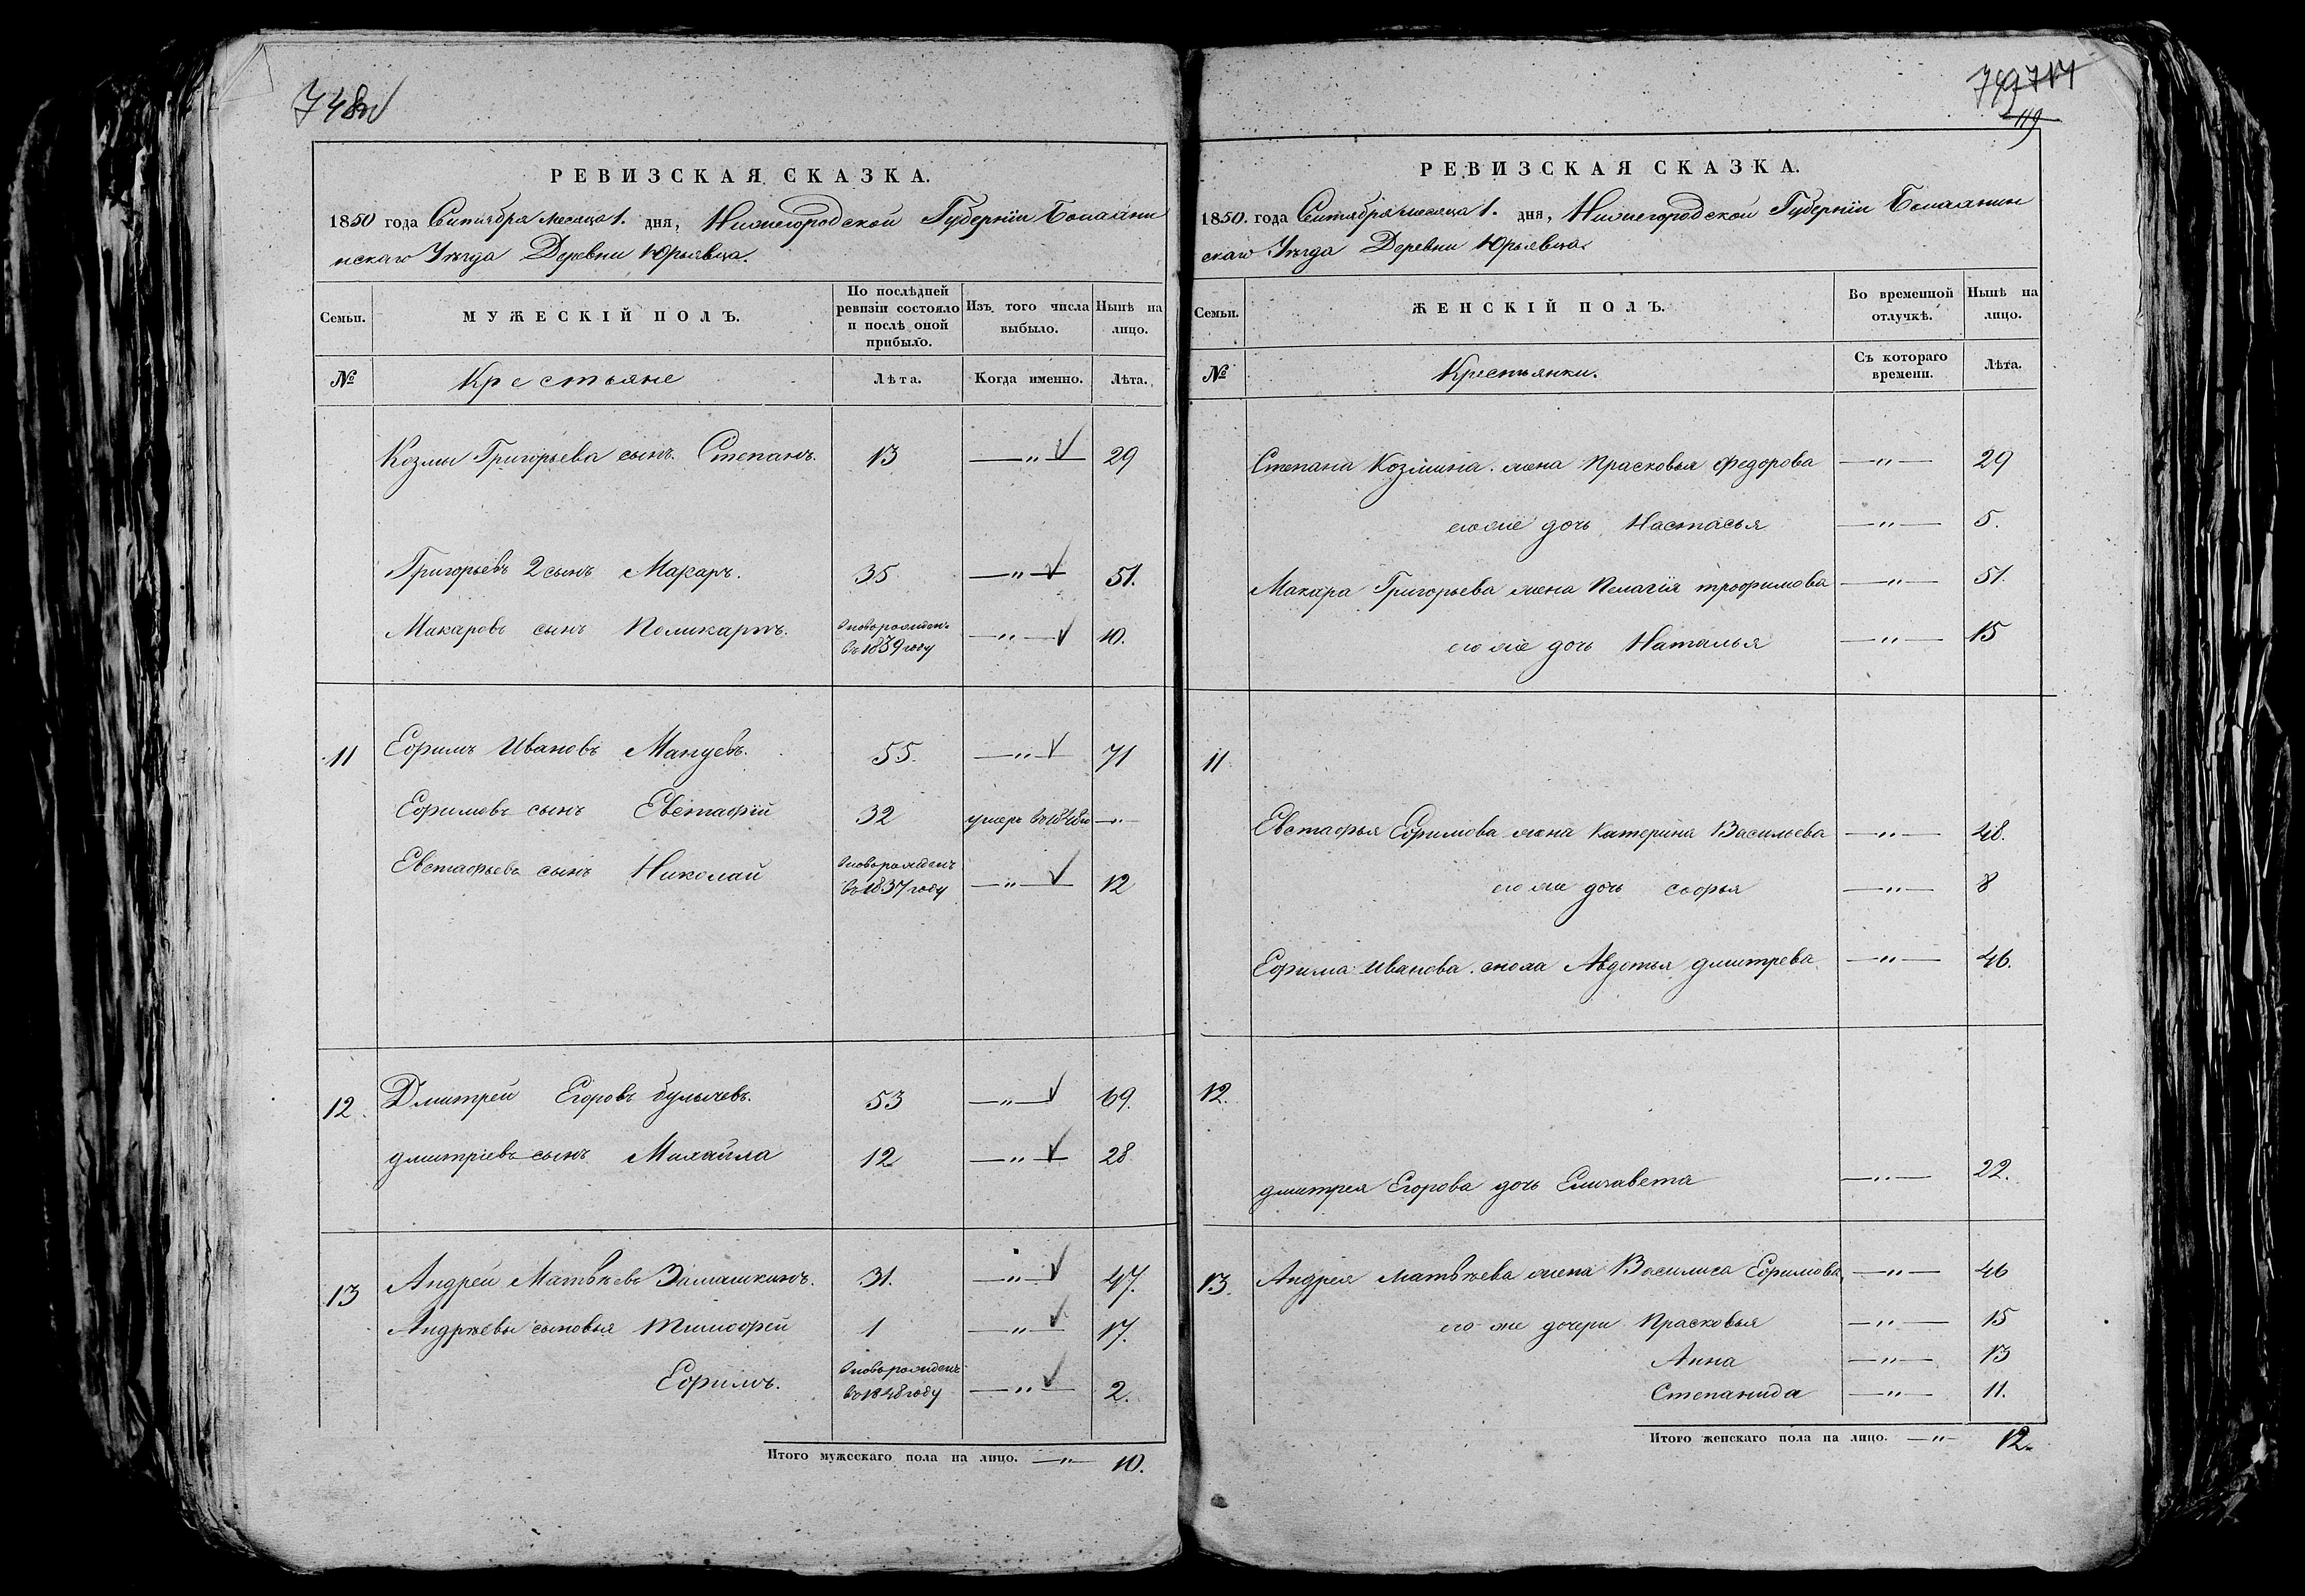 748
РЕВИЗСКАЯ СКАЗКА.
1850 года Сентября месяца 1. дня, Нижегородской Губернiи Балахни
нскаго Уѣзда Деревни Юрьевца.
Семьи.
МУЖЕСКIЙ ПОЛЪ.
По послѣдней ревизiи состояло и послѣ оной прибыло.
Изъ того числа выбыло.
Нынѣ на лицо.
№
Крестьяне
Лѣта.
Когда именно.
Лѣта.
Козмы Григорьева сынъ Степанъ. 13 —"— 29
Григорьевъ 2 сынъ Макаръ. 35 —"— 51.
Макаровъ сынъ Поликарпъ. вновьрожденъ въ 1839 году —"— 10.
11 Ефимъ Ивановъ 55. —"— 71
Ефимовъ сынъ Евстафiй 32 умеръ въ 1848 —"—
Евстафьевъ сынъ Николай вновьрожденъ въ 1837 году —"— 12
12. Дмитрей Егоровъ Булычевъ. 53 —"— 69.
дмитрiевъ сынъ Михайла 12 —"— 28
13 Андрей Матвѣевъ Замашкинъ. 31. —"— 47.
Андрѣевы сыновья Тимофей 1 —"— 17.
Ефимъ. вновьрожденъ въ 1848 году —"— 2.
Итого мужескаго пола на лицо. —"— 10.
749
119
РЕВИЗСКАЯ СКАЗКА.
1850. года Сентября месяца 1. дня, Нижегородской Губернiи Балахнин
скаго Уѣзда Деревни Юрьевца.
Семьи.
ЖЕНСКIЙ ПОЛЪ.
Во временной отлучкѣ.
Нынѣ на лицо.
№
Крестьянки.
Съ котораго времени.
Лѣта.
Степана Козмина жена Прасковья Федорова —"— 29
его же дочь Настасья —"— 5.
Макара Григорьева жена Пелагiя трофимова —"— 51.
его же дочь Наталья —"— 15
11
Евстафья Ефимова жена Катерина Васильева —"— 48.
его же дочь софья —"— 8
Ефима Иванова сноха Авдотья дмитрева —"— 46.
12.
дмитрея Егорова дочь Елизавета —"— 22.
13. Андрея Матвѣева жена Василиса Ефимова —"— 46
его же дочери Прасковья —"— 15
Анна —"— 13
Степанида —"— 11.
Итого женскаго пола на лицо. —"— 12.